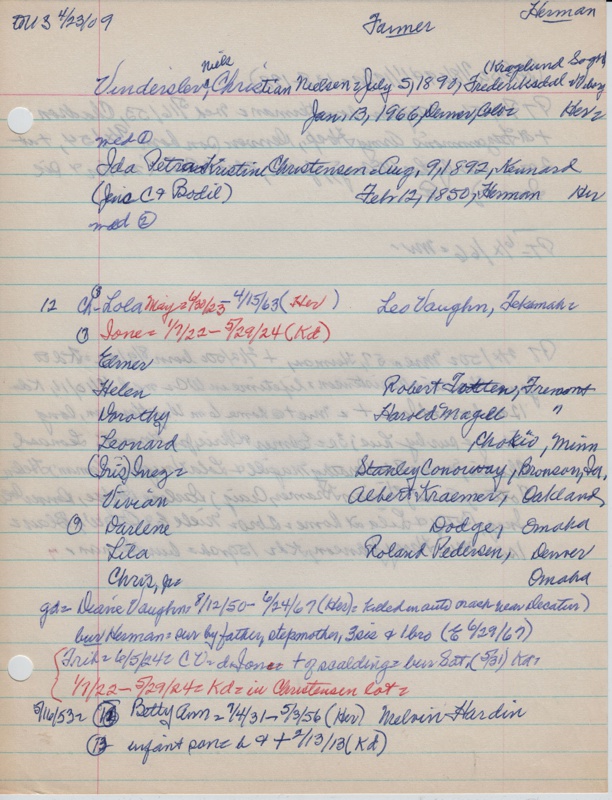 4/23/09 Farmer Herman
Niels (Kraglund Sogn,
Vinderslev, Christian Nielsen = July 5, 1890,
Jan. 13, 1966, Denver, Colo = Her
med ①
Ida Petra Kristine Christensen = Aug. 9, 1892, Kennard
(Jens C & Bodil) Feb 12, 1850, Herman Her
med ②
12 Ch- Lola May = 4/15/63 (Her) Leo Vaughn, Tekamah =
Ione = 1/7/22 - 5/29/24 (Kd)
Elmer
Helen Robert Totten, Fremont
Dorothy Harold Magill "
Leonard Chokio, Minn
(Iris) Inez = Stanley Conoway, Bronson, Ia.
Vivian Albert Kraemer, Oakland,
Darlene Dodge, Omaha
Lila Roland Pedersen, Denver
Chris, Jr= Omaha
gd= Diane Vaughn = 8/12/50 - 6/24/67 (Her) = killed in auto crash near Decatur)
bur Herman = sur by father, stepmother, 3 sis & 1 bro (E 6/29/67)
(Trib = 6/5/24 = CV = d Ione = + of scalding = bur Sat. (5/31) Kd =
1/7/22 - 5/29/24 = Kd = in Christensen lot =
5/16/53 = Betty Ann = 7/4/31 - 5/3/56 (Her) Melvin Hardin
⑬ infant son = b & + 2/13/13 (Kd)